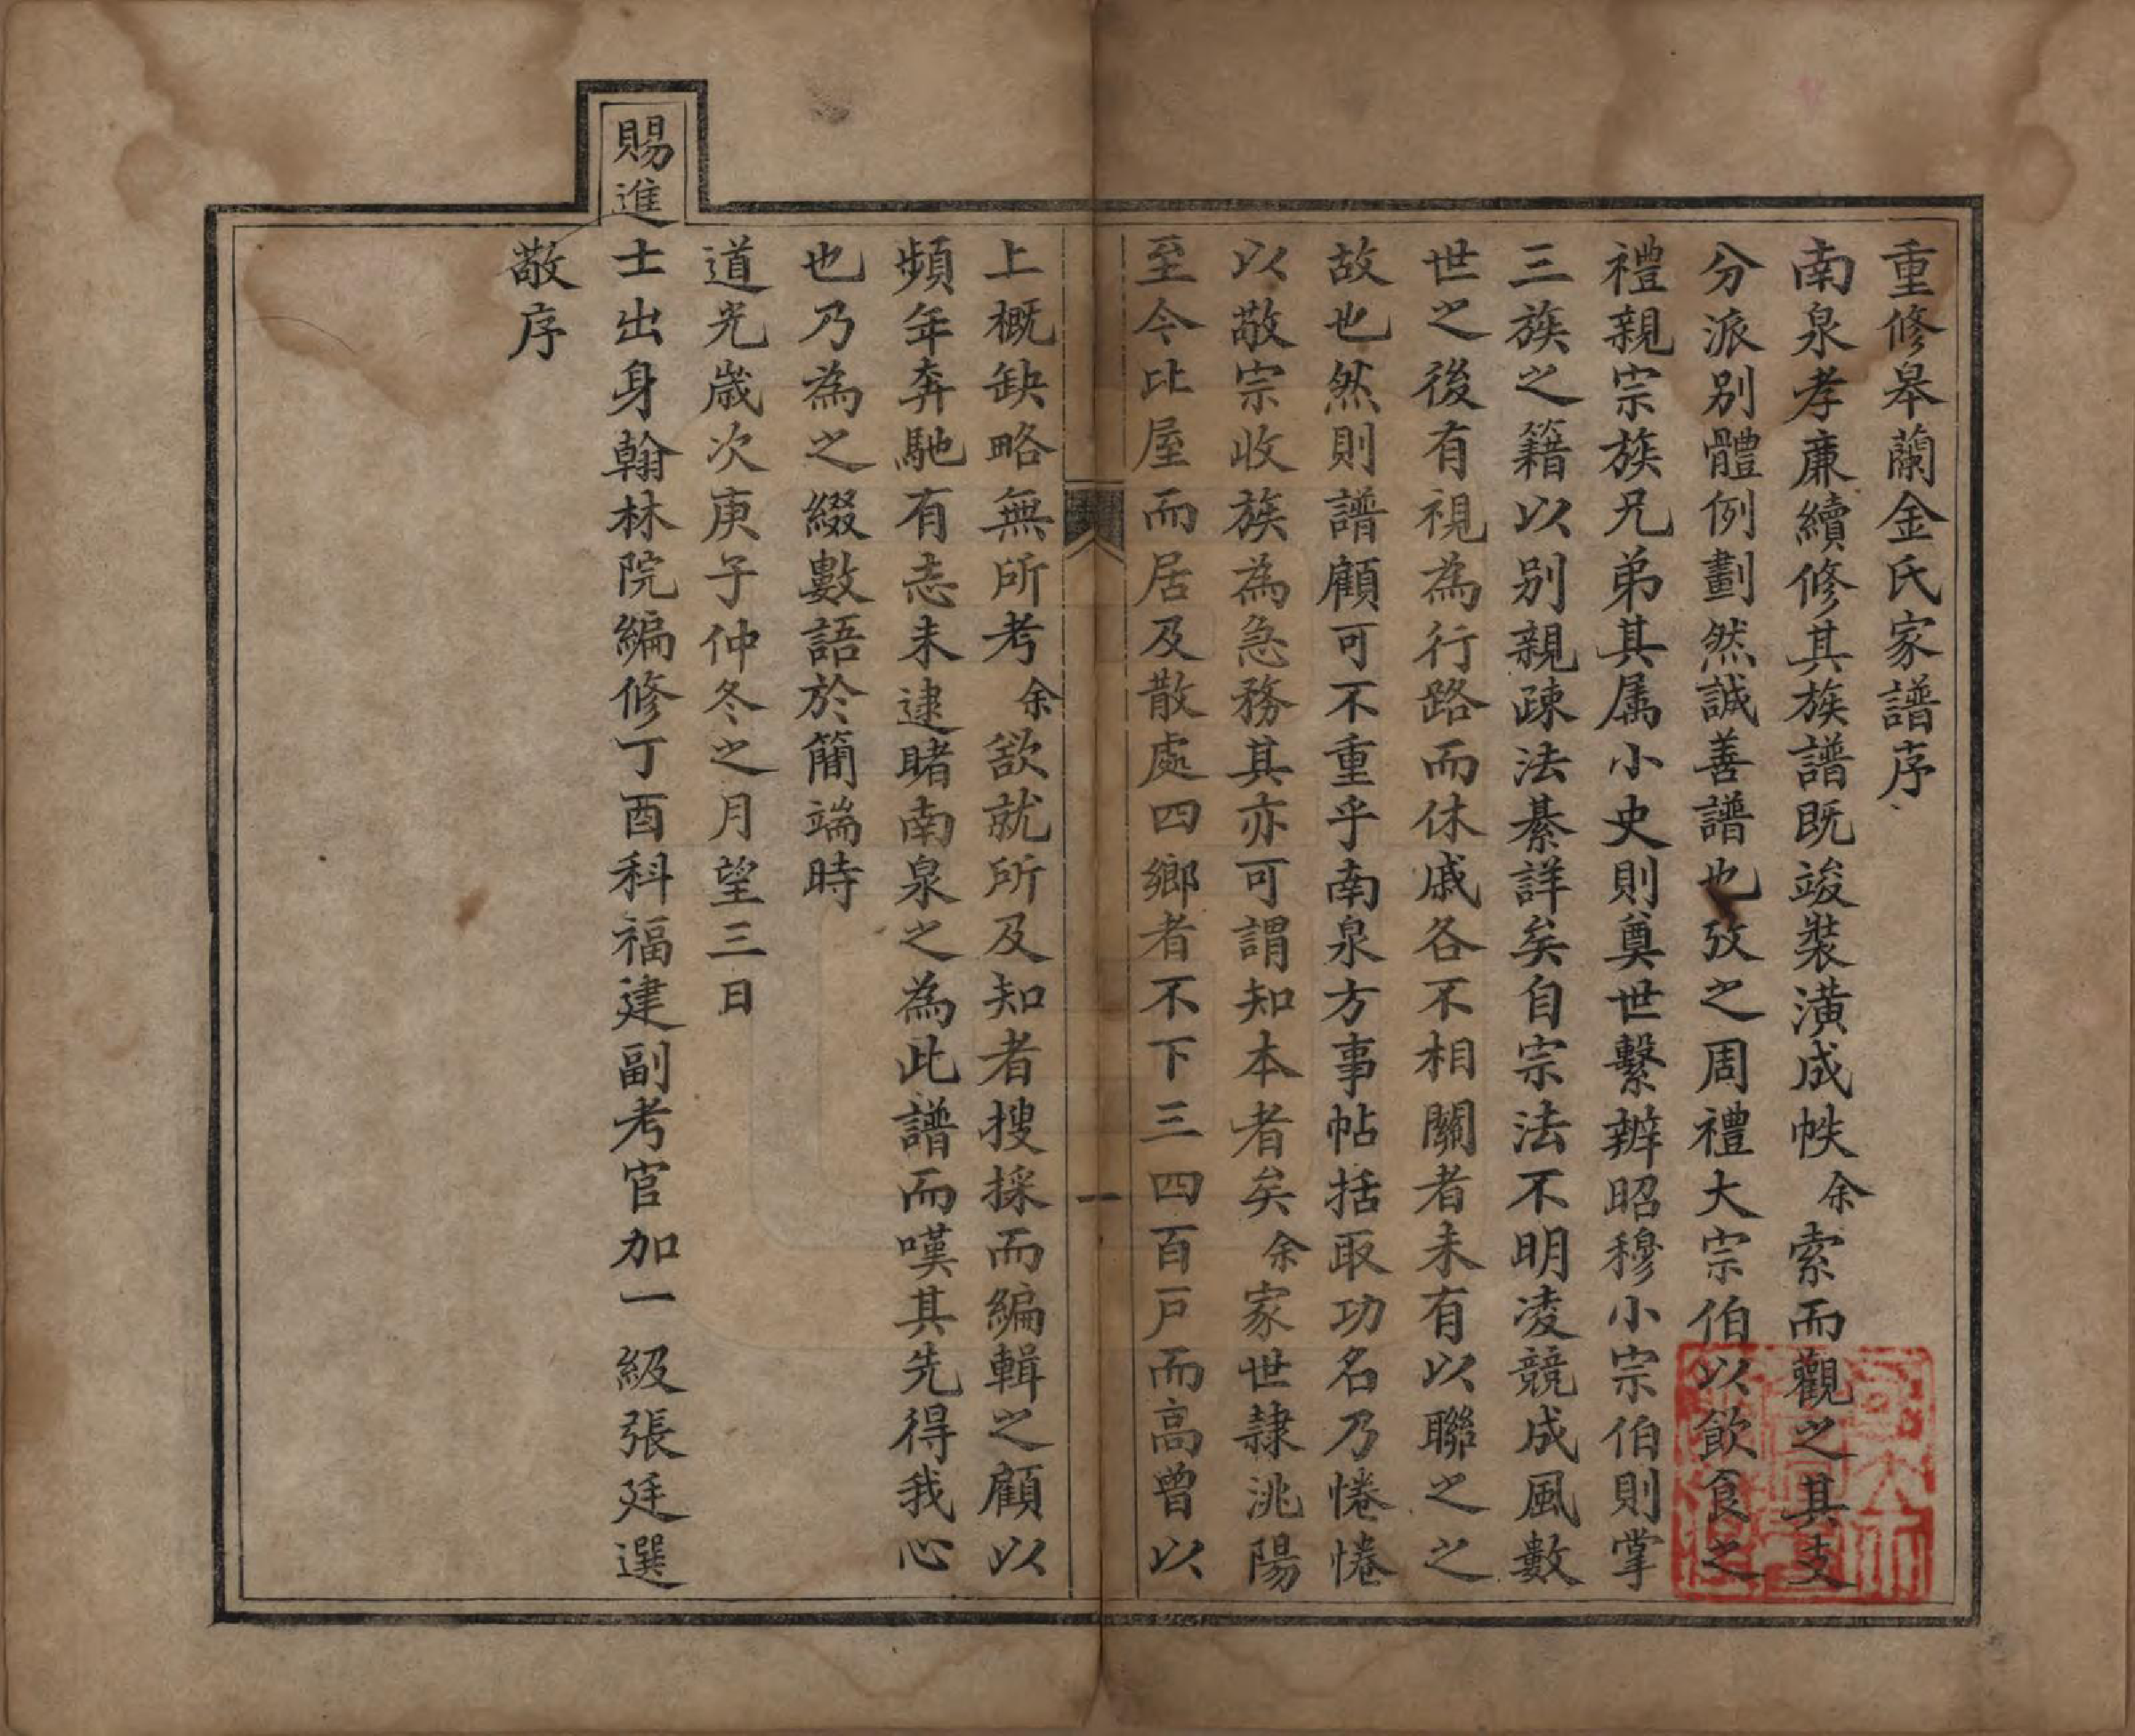 重修皋蘭金氏家譜序
南泉孝亷續修其族譜既竣裝潢成帙余索而觀之其支
分派別體例劃然誠善譜也攷之周禮大宗伯以飲食之
禮親宗族兄弟其属小史則奠世繫辨昭穆小宗伯則掌
三族之籍以别親疎法綦詳矣自宗法不明凌競成風數
世之後有視為行路而休戚各不相關者未有以聯之之
故也然則譜顧可不重乎南泉方事帖括取功名乃惓惓
以敬宗收族為急務其亦可謂知本者矣余家世隷洮陽
至今比屋而居及散處四鄉者不下三四百戸而高曾以
一
上概缺略無所考余欲就所及知者搜採而編輯之顧以
頻年奔馳有志未逮睹南泉之為此譜而嘆其先得我心
也乃為之綴數語於簡端時
道光歲次庚子仲冬之月望三日
賜進士出身翰林院編修丁酉科福建副考官加一級張廷選
敬序